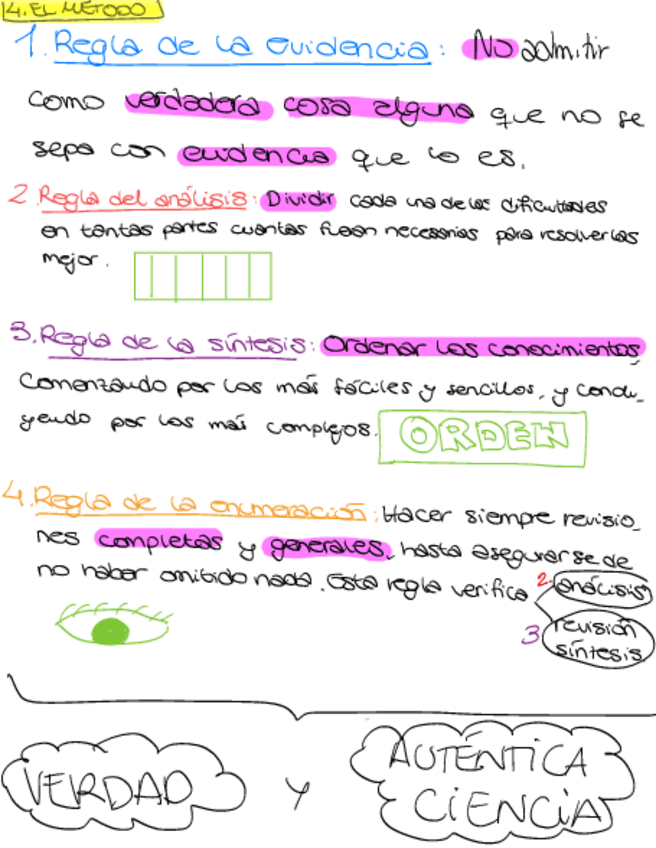 4. EL MÉTODO
1. Regla de la evidencia: No admitir
como verdadera cosa alguna que no se
sepa con evidencia que lo es.
2. Regla del análisis: Dividir cada una de las dificultades
en tantas partes cuantas fueran necesarias para resolverlas
mejor.
3. Regla de la síntesis: Ordenar los conocimientos,
comenzando por los más fáciles y sencillos, y conclu_
yendo por los más complejos. ORDEN
4. Regla de la enumeración: Hacer siempre revisio_
nes completas y generales, hasta asegurarse de
no haber omitido nada. Esta regla verifica 2. análisis
3 revisión
síntesis
VERDAD y AUTÉNTICA
CIENCIA